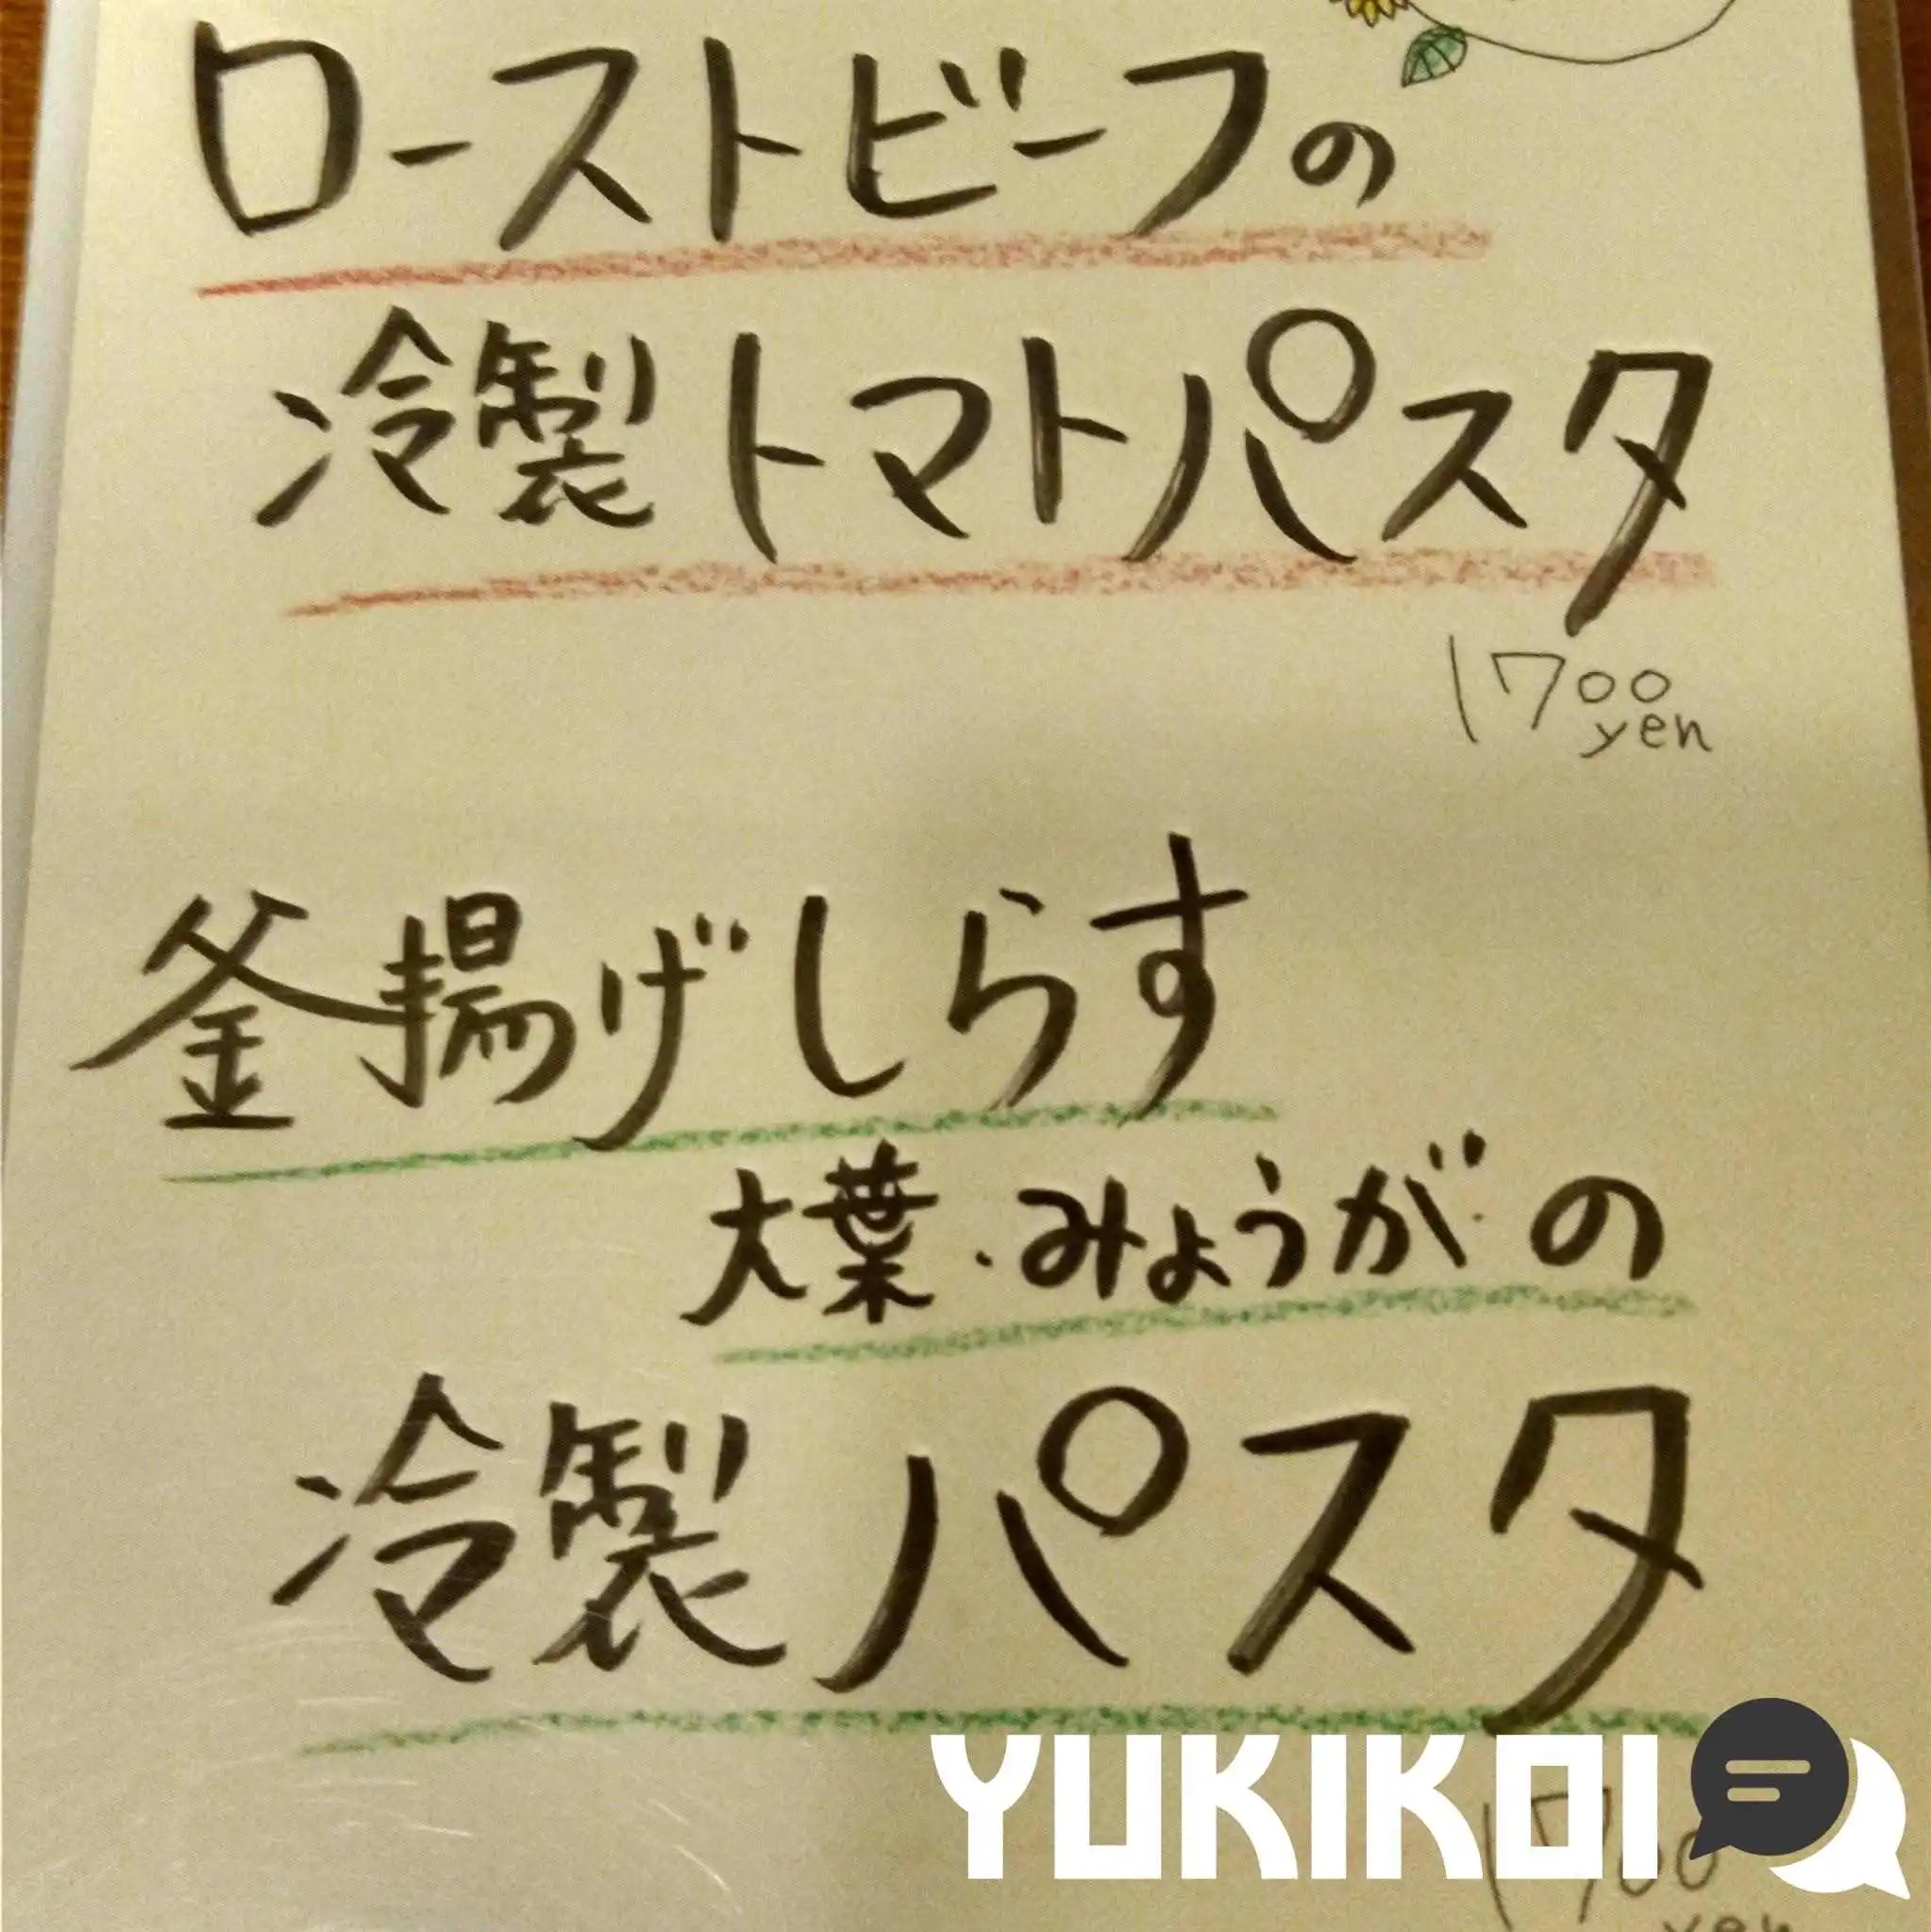 ローストビーフの
冷製トマトパスタ
1700
yen
釜揚げしらす
大葉・みょうがの
冷製パスタ
YUKIKOI
1700
yen